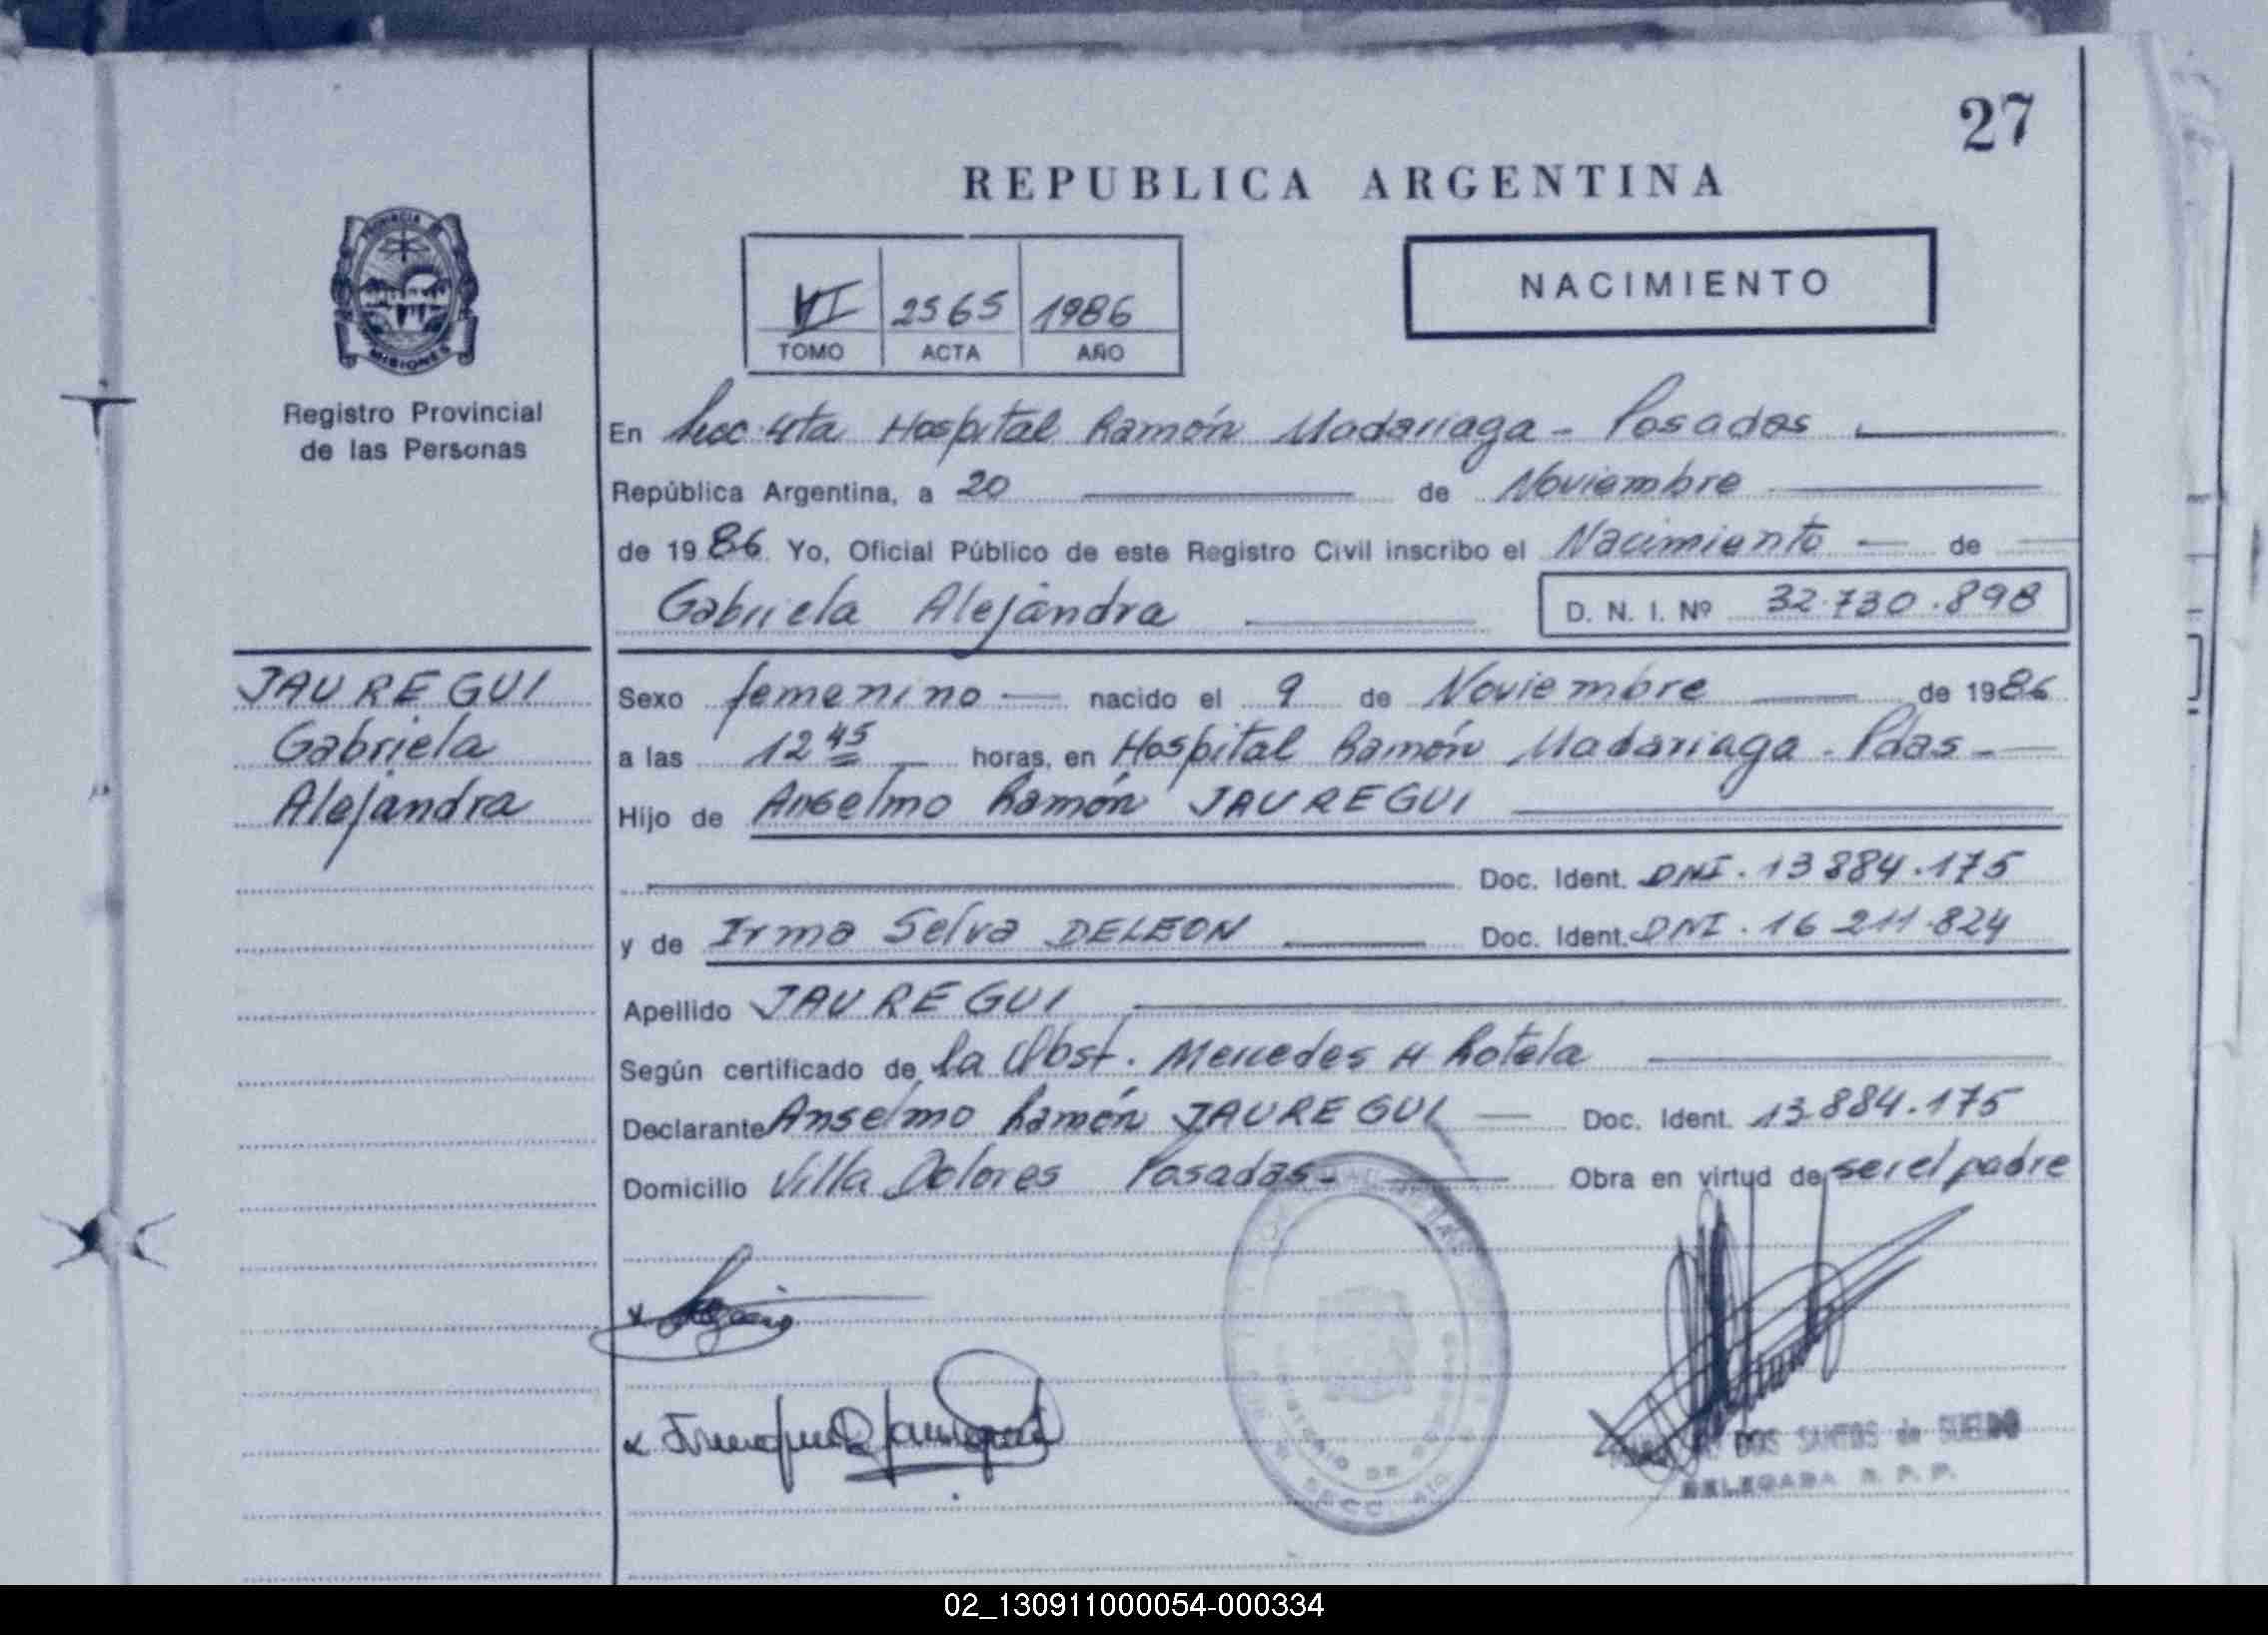 27
REPUBLICA ARGENTINA
PROVINCIA
MISIONES
Registro Provincial
de las Personas
VI 2565 1986
TOMO ACTA AÑO
NACIMIENTO
En Secc 4ta Hospital Ramón Madariaga - Posadas
República Argentina, a 20 de Noviembre
de 1986 Yo, Oficial Público de este Registro Civil inscribo el Nacimiento de
Gabriela Alejandra D. N. I. Nº 32.730.898
JAUREGUI
Gabriela
Alejandra
Sexo femenino nacido el 9 de Noviembre de 1986
a las 12 45 horas, en Hospital Ramón Madariaga - Pdas -
Hijo de Anselmo Ramón JAUREGUI
Doc. Ident. DNI. 13 884.175
y de Irma Selva DELEON Doc. Ident. DNI. 16 211.824
Apellido JAUREGUI
Según certificado de la Obst. Mercedes H Rotela
Declarante Anselmo Ramón JAUREGUI Doc. Ident. 13.884.175
Domicilio Villa Dolores Posadas - Obra en virtud de ser el padre
DOS SANTOS de SUELDO
DELEGADA R. P. P.
02_130911000054-000334